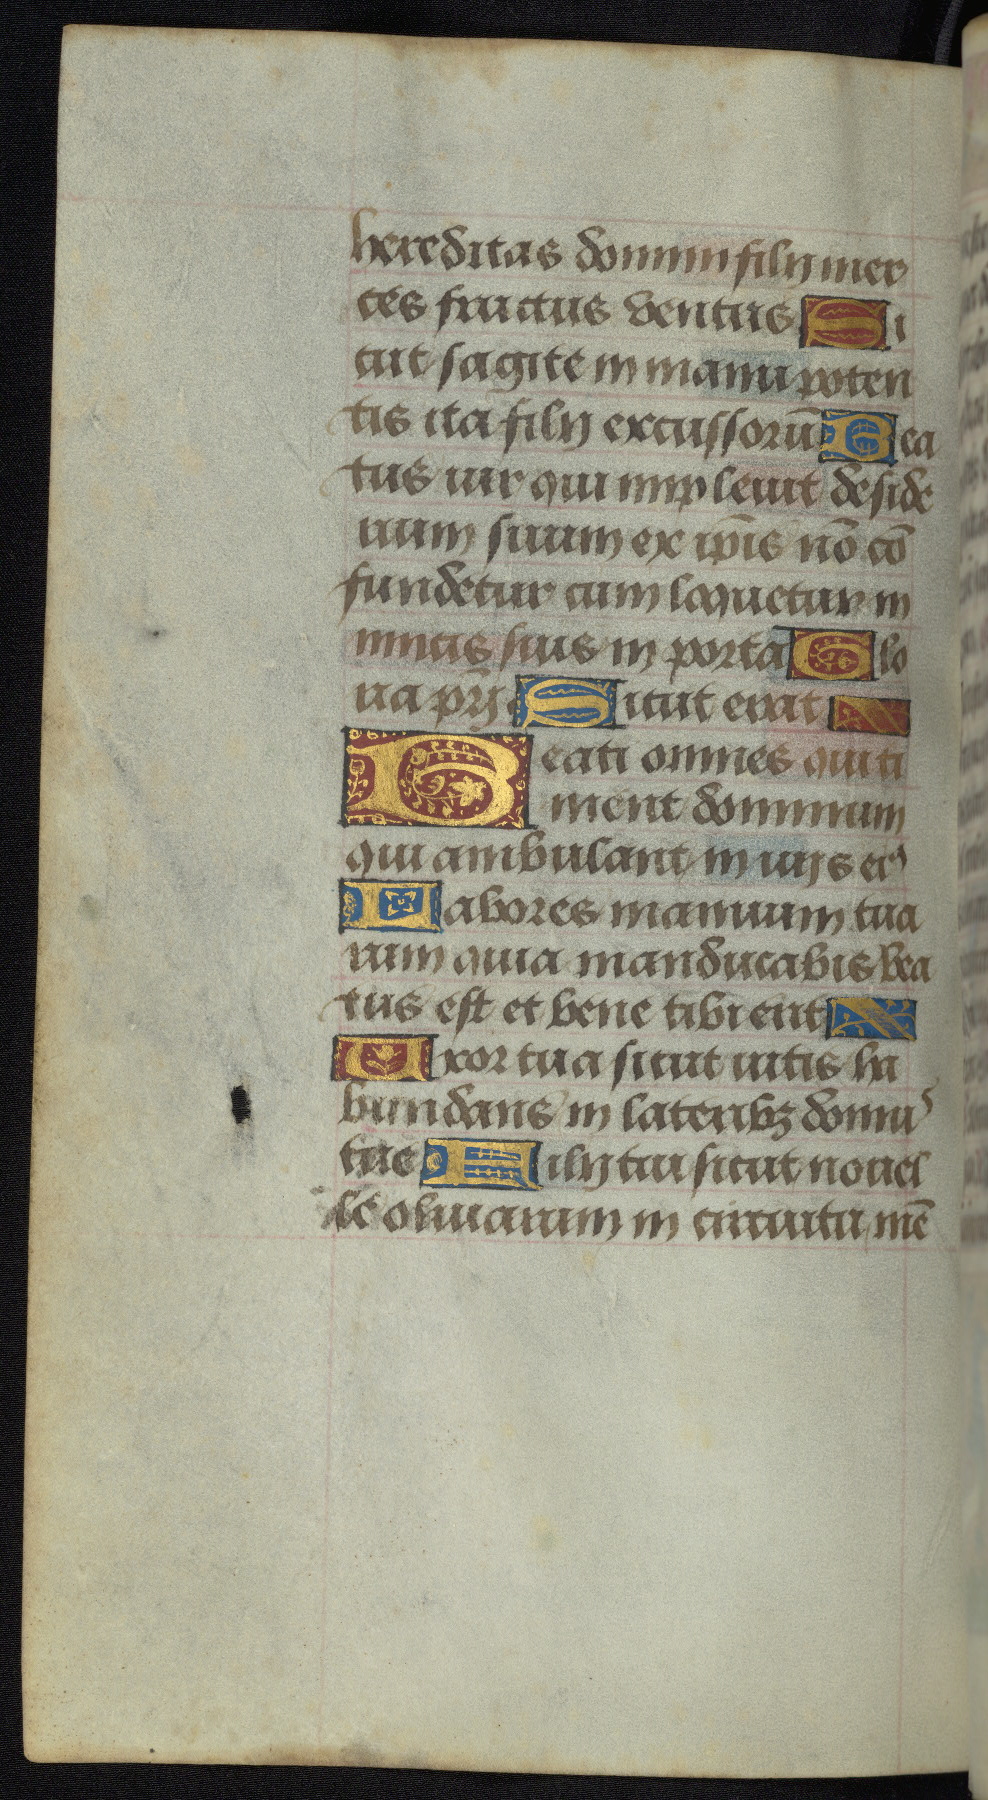 hereditas domini filij mer
ces fructus ventris Si
cut sagite in manu poten
tis ita filij excussorū Bea
tus uir qui impleuit deside
rium suum ex ip̄is nō cō
fundetur cum loquetur in
imicis suis in porta Glo
ria pr̄i Sicut erat
Beati omnes qui ti
ment dominum
qui ambulant in uijs eiꝰ
Labores manuum tua
rum quia manducabis bea
tus est et bene tibi erit
Uxor tua sicut uitis ha
bundans in lateribꝫ domuˢ
tue Filij tui sicut nouel
le oliuarum in circuitu mē